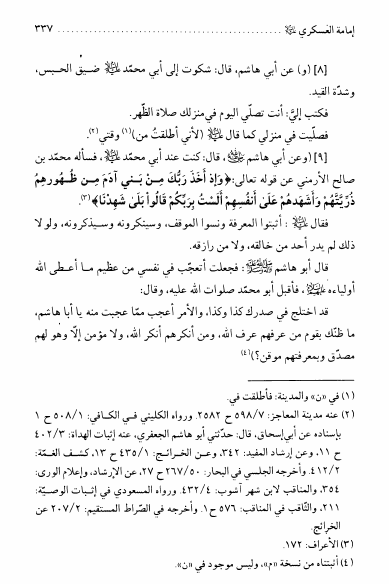 إمامة العسكري ﷺ ............................................................ ٣٣٧
[٨] (و) عن أبي هاشم، قال: شكوت إلى أبي محمّد ﷺ ضيق الحبس،
وشدّة القيد.
فكتب إليَّ: أنت تصلّي اليوم في منزلك صلاة الظّهر.
فصلّيت في منزلي كما قال ﷺ (لأني أُطلقتُ من)(١) وقتي(٢).
[٩] (و)عن أبي هاشم، قال: كنت عند أبي محمّد ﷺ، فسأله محمّد بن
صالح الأرمني عن قوله تعالى:﴿وَإِذْ أَخَذَ رَبُّكَ مِنْ بَنِي آدَمَ مِن ظُهُورِهِمْ
ذُرِّيَّتَهُمْ وَأَشْهَدَهُمْ عَلَى أَنفُسِهِمْ أَلَسْتُ بِرَبِّكُمْ قَالُوا بَلَى شَهِدْنَا﴾(٣).
فقال ﷺ : أثبتوا المعرفة ونسوا الموقف، وسينكرونه وسيذكرونه، ولولا
ذلك لم يدر أحد من خالقه، ولا من رازقه.
قال أبو هاشم: فجعلت أتعجّب في نفسي من عظيم مـا أعـطى الله
أولياءه، فأقبل أبو محمّد صلوات الله عليه، وقال:
قد اختلج في صدرك كذا وكذا، والأمر أعجب ممّا عجبت منه يا أبا هاشم،
ما ظنّك بقوم من عرفهم عرف الله، ومن أنكرهم أنكر الله، ولا مؤمن إلّا وهو لهم
مصدّق وبمعرفتهم موقن؟)(٤)
(١) في «ن» والمدينة: فأُطلقت في.
(٢) عنه مدينة المعاجز: ٥٩٨/٧ ح ٢٥٨٢. ورواه الكليني فـي الكـافي: ٥٠٨/١ ح ١
بإسناده عن أبي إسحاق، قال: حدّثني أبو هاشم الجعفري، عنه إثبات الهداة: ٤٠٢/٣
ح ١١، وعن إرشاد المفيد: ٣٤٢، وعـن الخـرائج: ٤٣٥/١ ح ١٣، كشـف الغـمّة:
٤١٢/٢. وأخرجه المجلسي في البحار: ٢٦٧/٥٠ ح ٢٧، عن الإرشاد، وإعلام الورى:
٣٥٤، والمناقب لابن شهر آشوب: ٤٣٢/٤. ورواه المسعودي في إثـبات الوصـيّة:
٢١١، والثّاقب في المناقب: ٥٧٦ ح ١. وأخرجه في الصّراط المستقيم: ٢٠٧/٢ عن
الخرائج.
(٣) الأعراف: ١٧٢.
(٤) أثبتناه من نسخة «م»، وليس موجود في «ن».